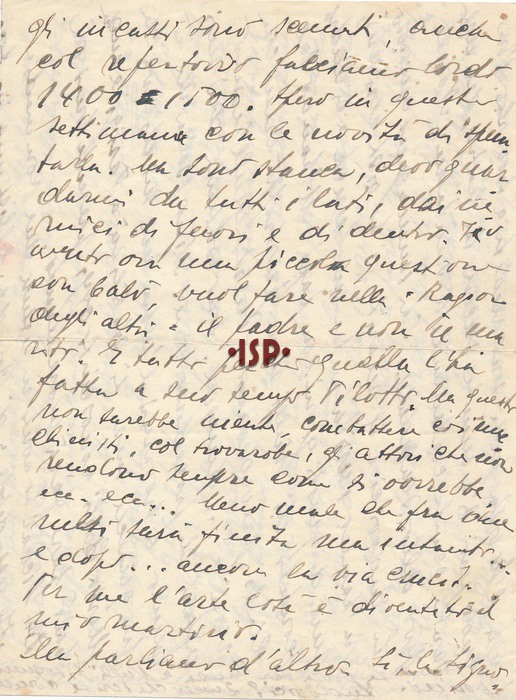 gli incassi sono scemati, anche
col repertorio facciamo lordo
1400 = 1500. Spero in questa
settimana con le novità di spun
tarla. Ma sono stanca, devo guar
darmi da tutti i lati, dai ne
mici di fuori e di dentro. Ho
avuto ora una piccola questione
con Calò, vuol fare nella "Ragione
degli altri" il padre e non il ma
rito. E tutto perché quella l'ha
fatta a suo tempo Pilotto. Ma questo
non sarebbe niente, combattere coi mac
chinisti, col trovarobe, gli attori che non
rendono sempre come si vorrebbe
ecc. ecc... Meno male che fra
sarà finita ma intanto...
e dopo... ancora la via crucis.
Per me l'arte così è diventata il
mio martirio.
Ma parliamo d'altro. Sì, la Signo
·ISP·